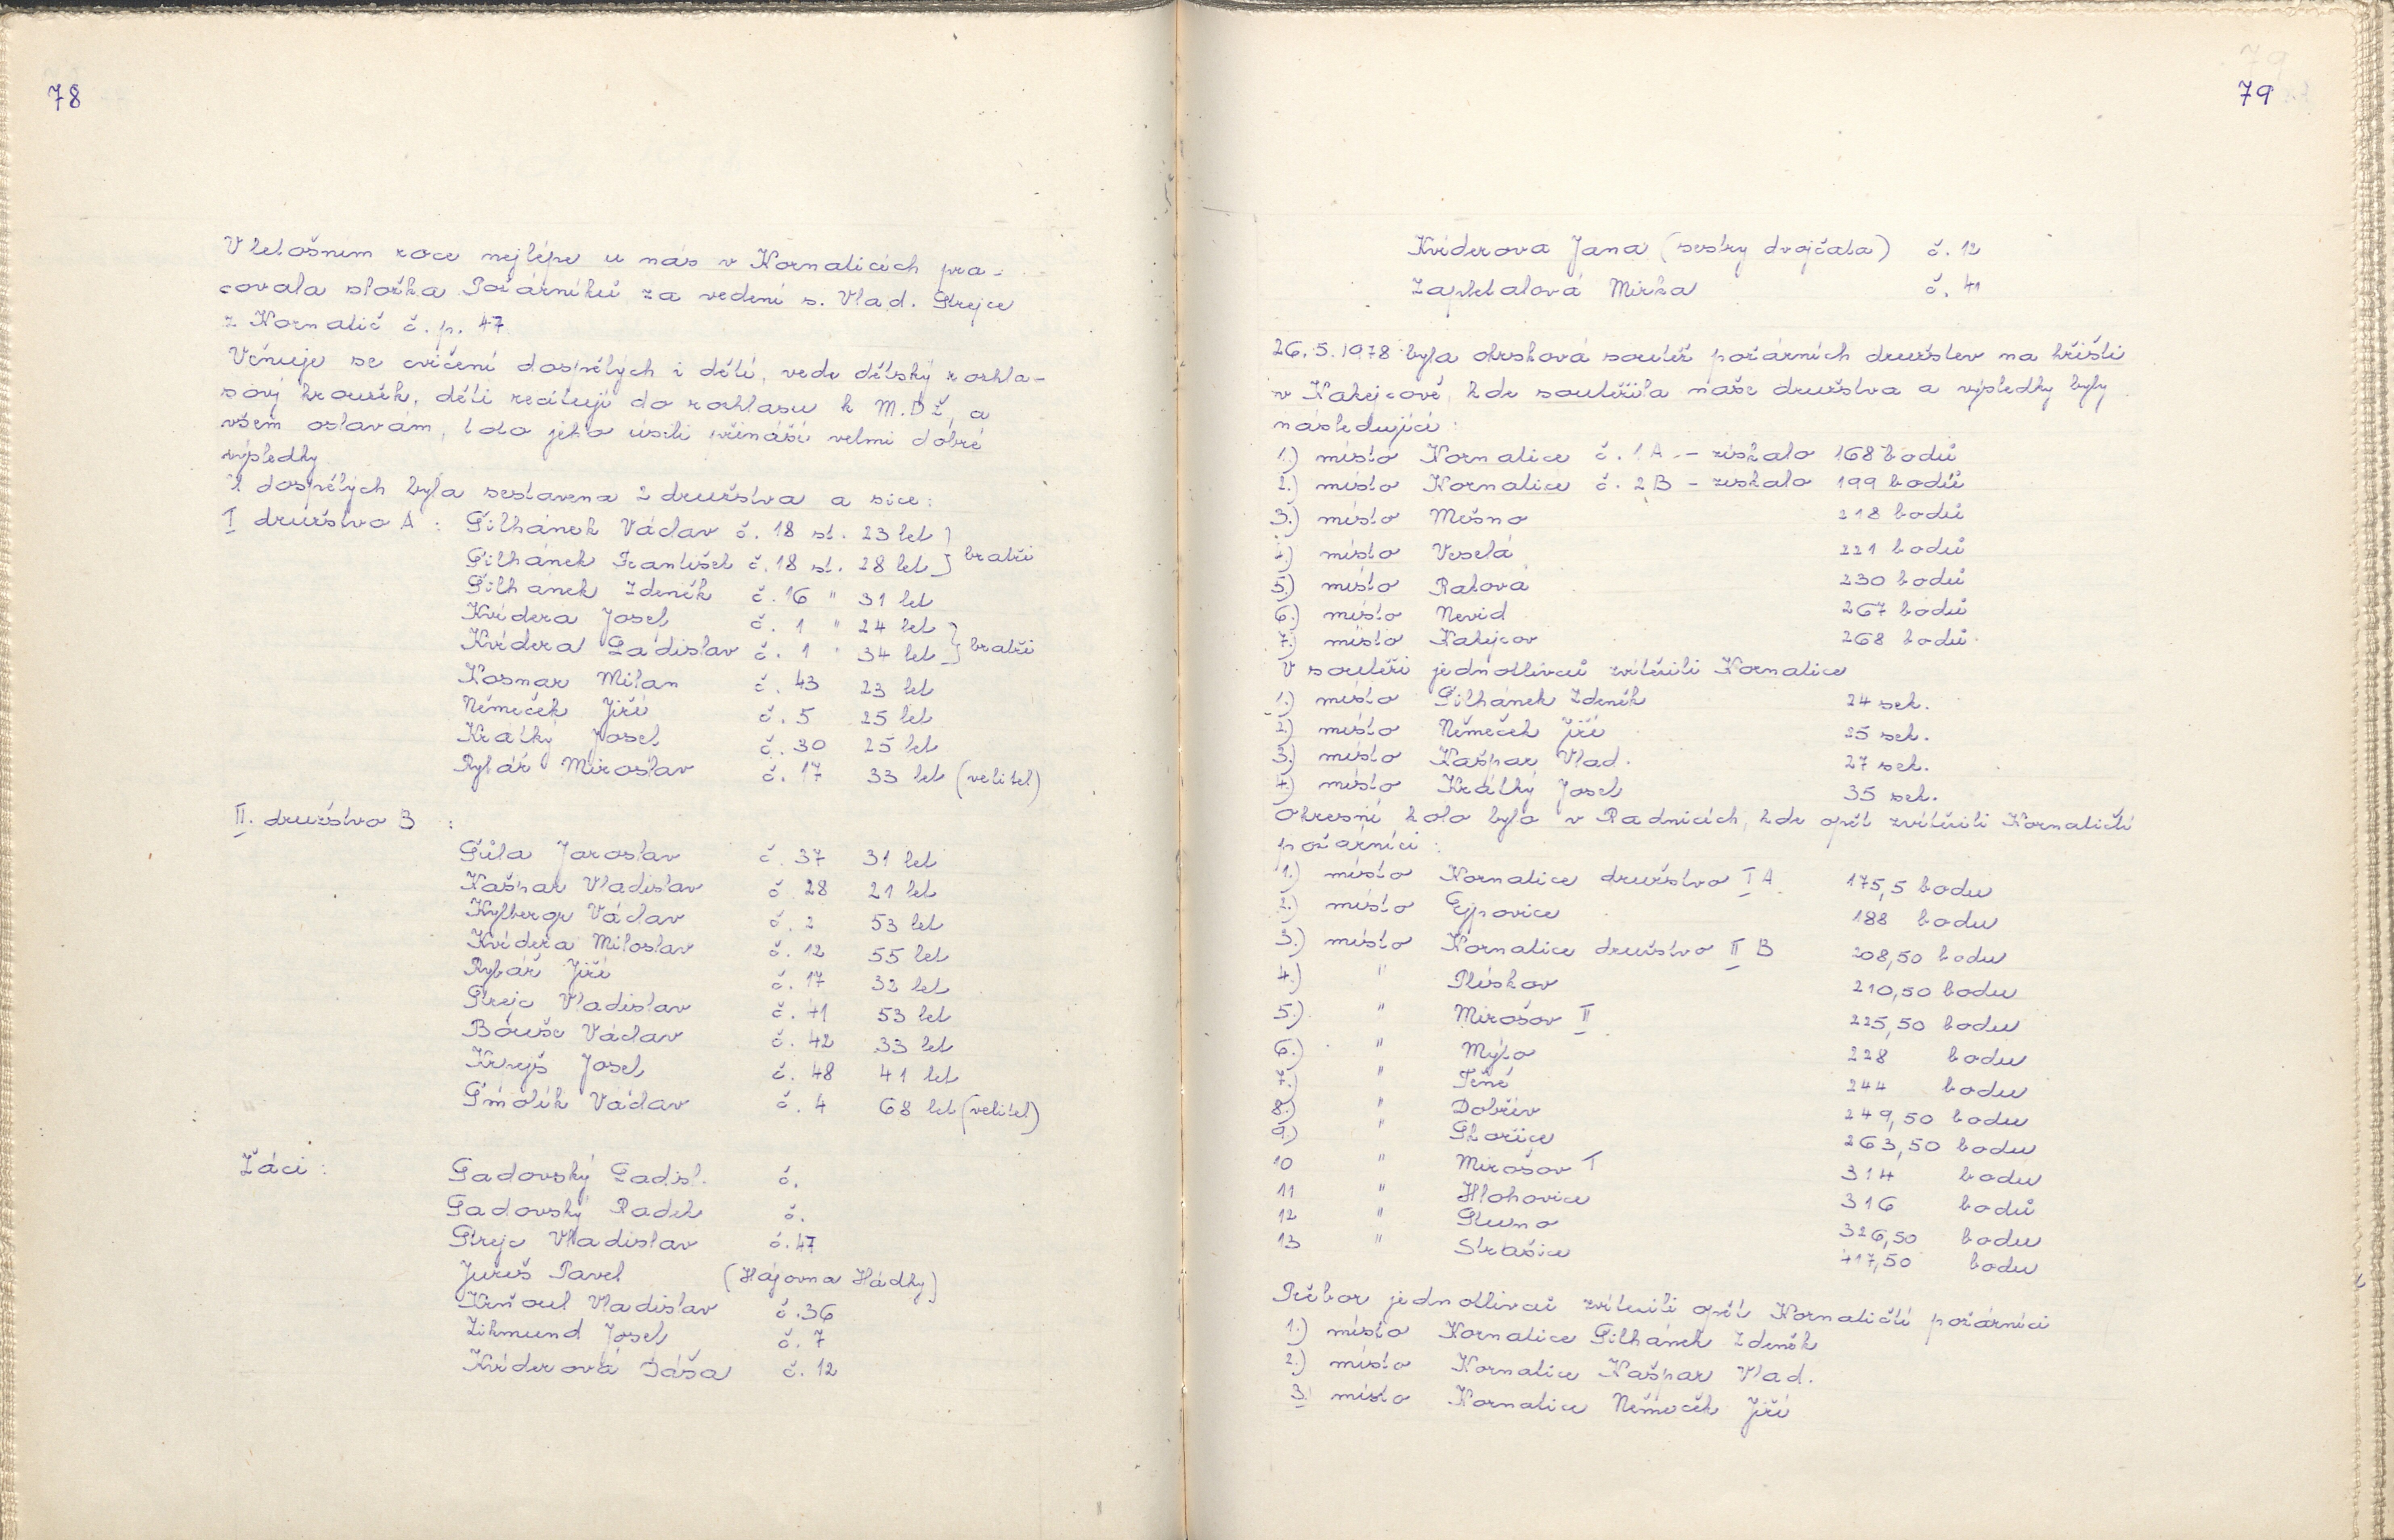 78
V letošním roce nejlépe u nás v Kornaticích pra-
covala složka Požárníků za vedení s. Vlad. Strejce
z Kornatic č. p. 47
Věnuje se cvičení dospělých i dětí, vede dětský rozhla-
sový kroužek, děti recitují do rozhlasu k M.D.Ž. a
všem oslavám, toto jeho úsilí přináší velmi dobré
výsledky
Z dospělých byla sestavena 2 družstva a sice:
I družstvo A : Šilhánek Václav č. 18 st. 23 let } bratři
Šilhánek František č. 18 st. 28 let }
Šilhánek Zdeněk č. 16 " 31 let
Kvidera Josef č. 1 " 24 let } bratři
Kvidera Ladislav č. 1 " 34 let }
Kosnar Milan č. 43 23 let
Němeček Jiří č. 5 25 let
Krátký Josef č. 30 25 let
Rybář Miroslav č. 17 33 let (velitel)
II. družstvo B :
Jaroslav č. 37 31 let
Kašpar Vladislav č. 28 21 let
Kylberger Václav č. 2 53 let
Kvidera Miloslav č. 12 55 let
Rybář Jiří č. 17 32 let
Strejc Vladislav č. 53 let
Bouše Václav č. 42 33 let
Josef č. 48 41 let
Smolík Václav č. 4 68 let (velitel)
Žáci :
Sadovský Ladisl. č.
Sadovský Radek č.
Strejc Vladislav č. 47
Pavel (Hájovna Hádky)
Krňoul Vladislav č. 36
Zikmund Josef č. 7
Kviderová Dáša č. 12
79
Kviderova Jana (sestry dvojčata) č. 12
Zapletalová Mirka č. 41
26. 5. 1978 byla okrsková soutěž požárních družstev na hřišti
v Kakejcově, kde soutěžila naše družstva a výsledky byly
následující :
1.) místo Kornatice č. 1 A. – získalo 168 bodů
2.) místo Kornatice č. 2 B – získalo 199 bodů
3.) místo Mešno 218 bodů
4.) místo Veselá 221 bodů
5.) místo Raková 230 bodů
6.) místo Nevid 267 bodů
7.) místo Kakejcov 268 bodů.
V soutěži jednotlivců zvítězili Kornatice
1.) místo Šilhánek Zdeněk 24 sek.
2.) místo Němeček Jiří 25 sek.
3.) místo Kašpar Vlad. 27 sek.
4.) místo Krátký Josef 35 sek.
Okresní kolo bylo v Radnicích, kde opět zvítězili Kornatičtí
požárníci :
1.) místo Kornatice družstvo I A 175,5 bodu
2.) místo Ejpovice 188 bodu
3.) místo Kornatice družstvo II B 208,50 bodu
4.) " Plískov 210,50 bodu
5.) " Mirošov II 225,50 bodu
6.) " Mýto 228 bodu
7.) " Těně 244 bodu
8.) " Dobřív 249,50 bodu
9.) " Skořice 263,50 bodu
10 " Mirošov I 314 bodu
11 " Hlohovice 316 bodů
12 " 326,50 bodu
13 " Strašice 417,50 bodu
Přebor jednotlivců zvítězili opět Kornatičtí požárníci
1.) místo Kornatice Šilhánek Zdeněk
2.) místo Kornatice Kašpar Vlad.
3. místo Kornatice Němeček Jiří